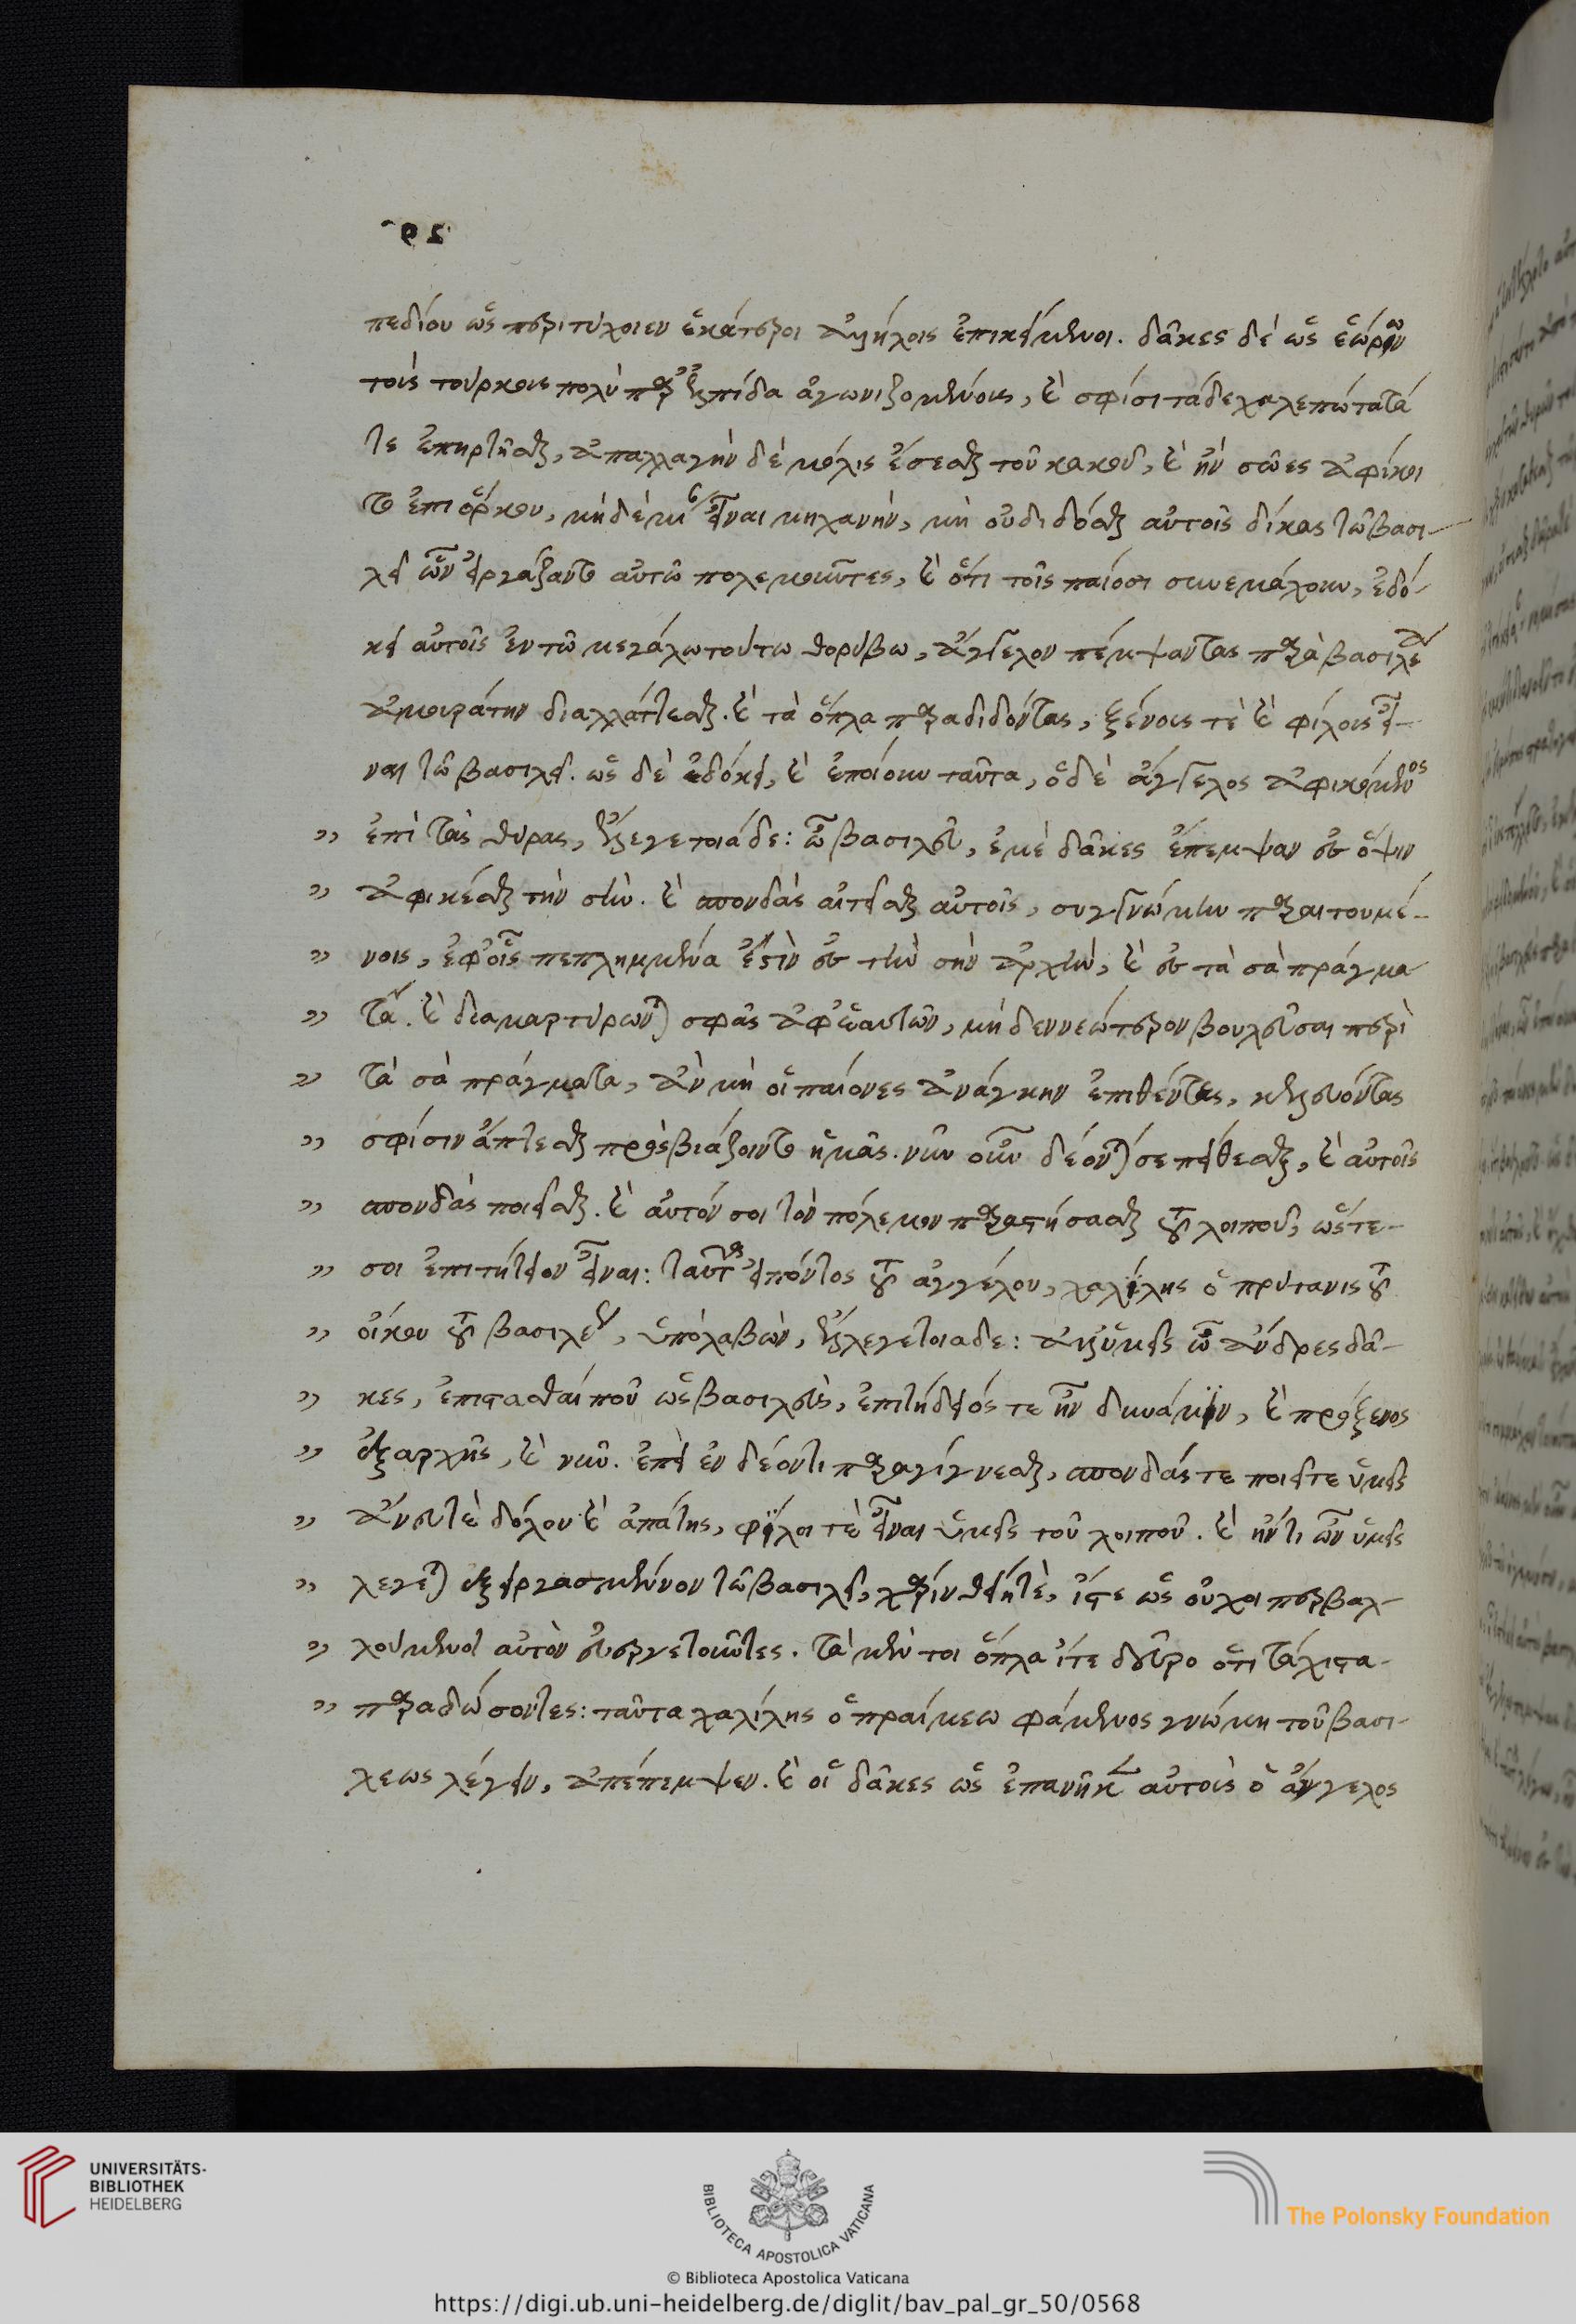 29
πεδίου ὡς περιτύχοιεν ἑκάτεροι ἀλλήλοις ἐπικείμενοι. δᾶκες δὲ ὡς ἑώρων
τοὺς τούρκους πολὺ παρ' ἐλπίδα ἀγωνιζομένους, καὶ σφίσι τάδε χαλεπώτατά
τε ἐπηρτῆσθαι, ἀπαλλαγὴν δὲ μόλις ἔσεσθαι τοῦ κακοῦ, καὶ ἢν σῶες ἀφίκοι
το ἐπὶ οἴκου, μὴ δὲ μίαν εἶναι μηχανὴν, μὴ οὐ διδόσθαι αὐτοῖς δίκας τῶ βασι-
λεῖ ὧν εἰργάξαντο αὐτῶ πολεμοῦντες, καὶ ὅτι τοῖς παίοσι συνεμάχουν, ἐδό-
κει αὐτοῖς ἐν τῶ μεγάλω τούτω θορύβω, ἄγγελον πέμψαντας παρὰ βασιλέα
ἀμουράτην διαλλάττεσθαι. καὶ τὰ ὅπλα παραδιδόντας, ξένους τὲ καὶ φίλους εἶ-
ναι τῶ βασιλεῖ. ὡς δὲ ἐδόκει, καὶ ἐποίουν ταῦτα, ὁ δὲ ἄγγελος ἀφικόμενος
" ἐπὶ τὰς θύρας, ἔλεγε τοιάδε: ὦ βασιλεῦ, ἐμὲ δᾶκες ἔπεμψαν ἐς ὄψιν
" ἀφικέσθαι τὴν σὴν. καὶ σπονδὰς αἰτεῖσθαι αὐτοῖς, συγγνώμην παραιτουμέ-
" νοις, ἐφ' οἷς πεπλημμένα ἐστὶν ἐς τὴν σὴν ἀρχὴν, καὶ ἐς τὰ σὰ πράγμα
" τα. καὶ διαμαρτύρωνται σφᾶς ἀφ' ἑαυτῶν, μὴ δὲν νεώτερον βουλεῦσαι περὶ
" τὰ σὰ πράγματα, ἂν μὴ οἱ παίονες ἀνάγκην ἐπιθέντες,
" σφίσιν ἅπτεσθαι προσβιάζοιντο ἡμᾶς. νῦν οὖν δέονταί σε πείθεσθαι, καὶ αὐτοῖς
" σπονδὰς ποιεῖσθαι. καὶ αὐτόν σοι τὸν πόλεμον παραστήσασθαι τοῦ λοιποῦ, ὥς τε-
" σοι ἐπιτήδειον εἶναι: ταῦτα εἰπόντος τοῦ ἀγγέλου, χαλίλης ὁ πρύτανις τοῦ
" οἴκου τοῦ βασιλέως, ὑπολαβὼν, ἔλεγε τοιάδε: ἀλλ' ὑμεῖς ὦ ἄνδρες δᾶ-
" κες, ἐπίστασθαί που ὡς βασιλεὺς, ἐπιτήδειός τε ἦν ὑμῖν, καὶ πρόξενος
" ἐξαρχῆς, καὶ νῦν. ἐπεὶ ἐν δέοντι παραγίγνεσθαι, σπονδάς τε ποιεῖτε ὑμεῖς
" ἄνευ τὲ δόλου καὶ ἀπάτης, φίλοι τὲ εἶναι ὑμεῖς τοῦ λοιποῦ. καὶ ἤν τι ὧν ὑμεῖς
" λέγεται ἐξειργασμένον τῶ βασιλεῖ, χάριν θεῖητὲ, ἴστε ὡς οὐχ ὑπερβαλ-
" λούμενοι αὐτὸν εὐεργετοῦντες. τὰ μέν τοι ὅπλα ἴτε δεῦρο ὅτι τάχιστα-
" παραδώσοντες: ταῦτα χαλίλης ὁ πραίμεω φάμενος γνώμη τοῦ βασι-
λέως λέγειν, ἀπέπεμψεν. καὶ οἱ δᾶκες ὡς ἐπανῆκεν αὐτοῖς ὁ ἄγγελος
UNIVERSITÄTS-
BIBLIOTHEK
HEIDELBERG
BIBLIOTECA APOSTOLICA VATICANA
The Polonsky Foundation
© Biblioteca Apostolica Vaticana
https://digi.ub.uni-heidelberg.de/diglit/bav_pal_gr_50/0568